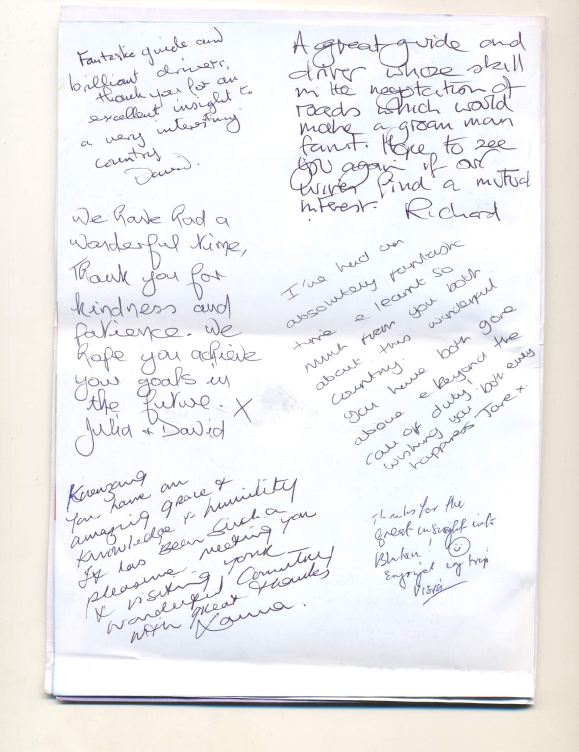 Fantastic guide and
brilliant drivers,
thank you for an
excellent insight to
a very interesting
country
David.
A great guide and
driver whose skill
in the negotiation of
roads which would
make a grown man
faint. Hope to see
you again if our
wives find a mutual
interest. Richard
We have had a
wonderful time,
Thank you for
kindness and
patience. We
hope you achieve
your goals in
the future. X
Julia + David
I've had an
absolutely fantastic
time & learnt so
much from you both
about this wonderful
country.
You have both gone
above & beyond the
call of duty
wishing you both every
happiness Jane x.
Kuenzang
You have an
amazing grace &
knowledge & humility
It has been such a
pleasure meeting you
& visiting your
wonderful Country
with great thanks
Thanks for the
great insight into
Bhutan! ☺
Enjoyed my trip